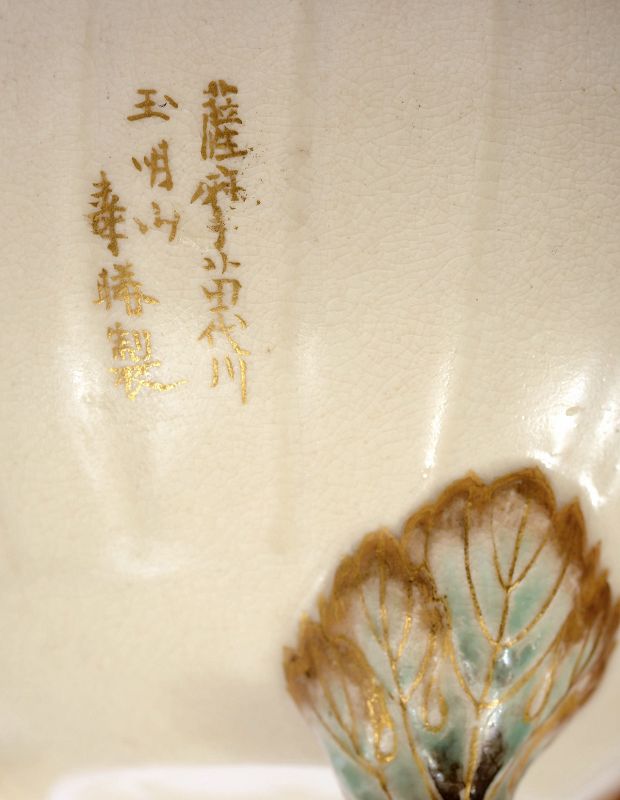 薩摩苗代川
玉明山
寿勝製